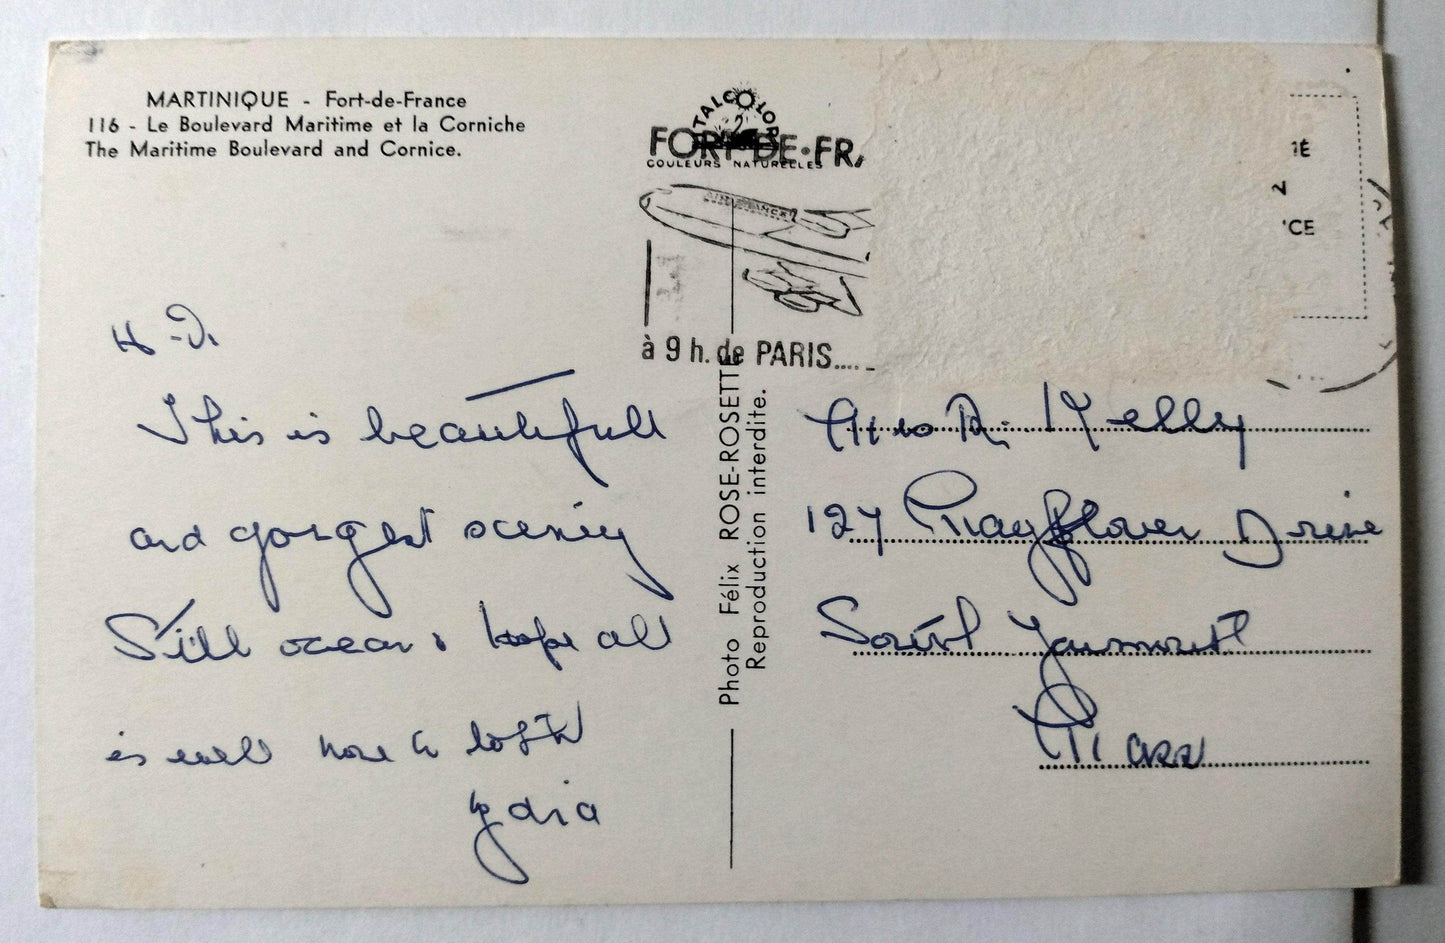 MARTINIQUE - Fort-de-France
116 - Le Boulevard Maritime et la Corniche
The Maritime Boulevard and Cornice.
TALCOLOR
COULEURS NATURELLES
FORT-DE-FR
AIR FRANCE
à 9 h. de PARIS....
IÉ
CE
This is beautifull
and gorgest scenery
Still ocean & hope all
is well
Lydia
Photo Félix ROSE-ROSETTE
Reproduction interdite.
R. Kelly
127 Mayflower Drive
South Yarmouth
Mass